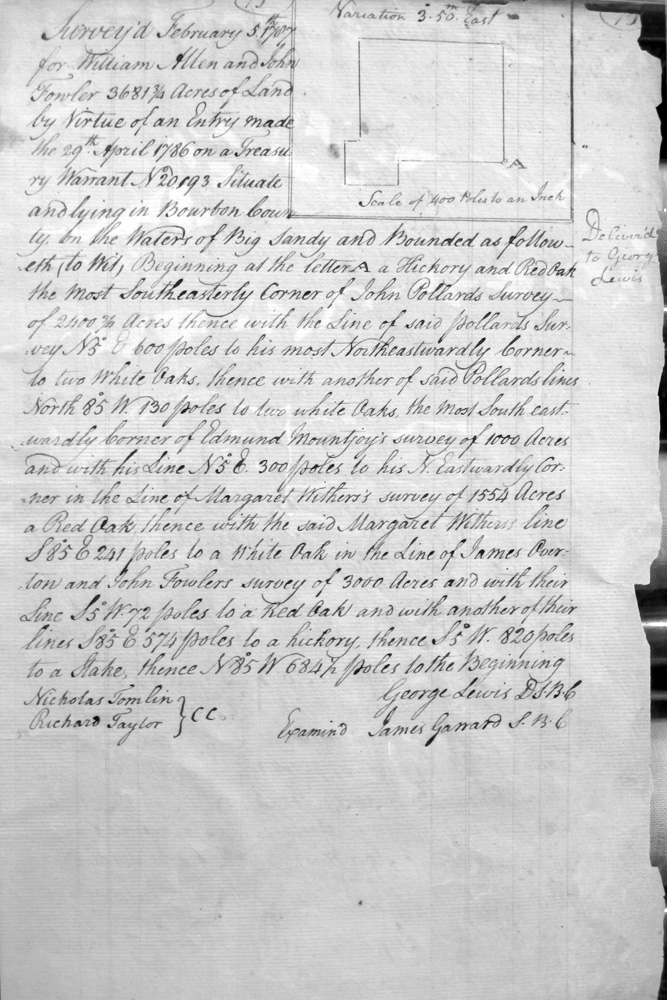 Survey'd February 5th 1787
for William Allen and John
Fowler 3681¾ Acres of Land
by Virtue of an Entry made
the 29th April 1786 on a Treasu
ry Warrant No 20,93 Situate
and lying in Bourbon Coun
ty. on the Waters of Big Sandy and Bounded as follow-
eth, to Wit, Beginning at the letter A a Hickory and Red Oak
the most Southeasterly Corner of John Pollards Survey
of 2400 Acres thence with the Line of said pollards Sur-
vey N5° E 600 poles to his most Northeastwardly Corner
to two White Oaks, thence with another of said Pollards lines
North 85° W. 130 poles to two white Oaks, the most South east-
wardly Corner of Edmund Mountjoy's survey of 1000 Acres
and with his Line N5° E. 300 poles to his N. Eastwardly Cor-
ner in the Line of Margaret Withers's survey of 1554 Acres
a Red Oak, thence with the said Margaret Withers's line
S85° E 241 poles to a White Oak in the Line of James Over-
ton and John Fowlers survey of 3000 Acres and with their
Line S5° W 72 poles to a Red Oak and with another of their
lines S85° E 574 poles to a hickory, thence S5° W. 820 poles
to a Stake, thence N85° W 684½ poles to the Beginning
Nicholas Tomlin
Richard Taylor } CC
George Lewis D.S.B.C
Examind James Garrard S.B.C
Variation 3°.50m East
A
Scale of 400 Poles to an Inch
Deliver'd
to George
Lewis